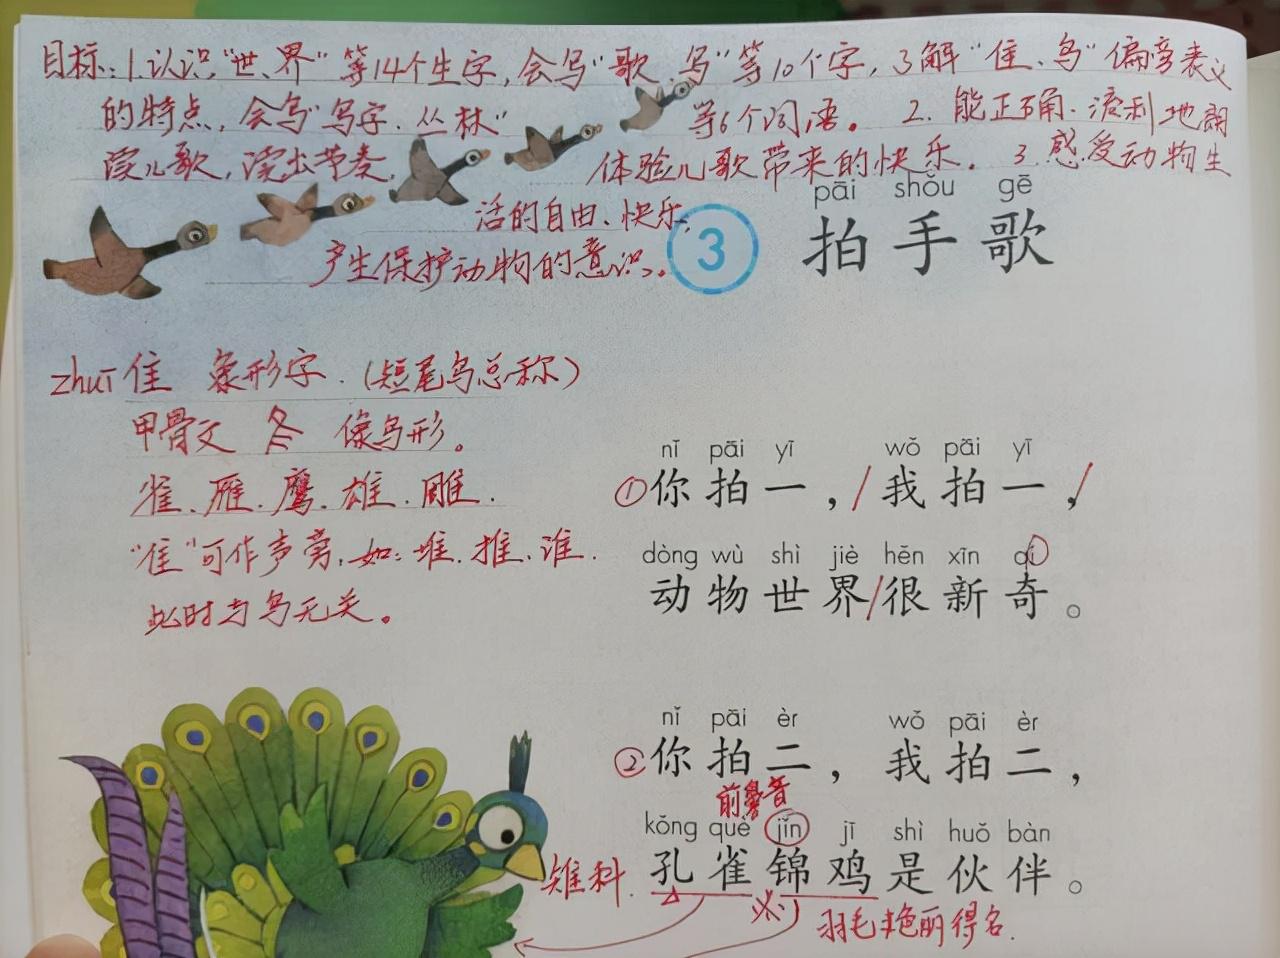 目标:1.认识"世、界"等14个生字,会写"歌、写"等10个字,了解"隹、鸟"偏旁表义
的特点,会写"写字、丛林"等6个词语。2.能正确、流利地朗
读儿歌,读出节奏,体验儿歌带来的快乐。3.感受动物生
活的自由、快乐,
产生保护动物的意识。
pāi shǒu gē
3 拍手歌
zhuī 隹 象形字.(短尾鸟总称)
甲骨文 像鸟形。
雀、雁、鹰、雄、雕.
"隹"可作声旁,如:堆、推、谁.
此时与鸟无关。
nǐ pāi yī wǒ pāi yī
①你拍一,/我拍一,/
dòng wù shì jiè hěn xīn qí
动物世界/很新奇。
nǐ pāi èr wǒ pāi èr
②你拍二,我拍二,
前鼻音
kǒng què jǐn jī shì huǒ bàn
雉科.孔雀锦鸡是伙伴。
羽毛艳丽得名.